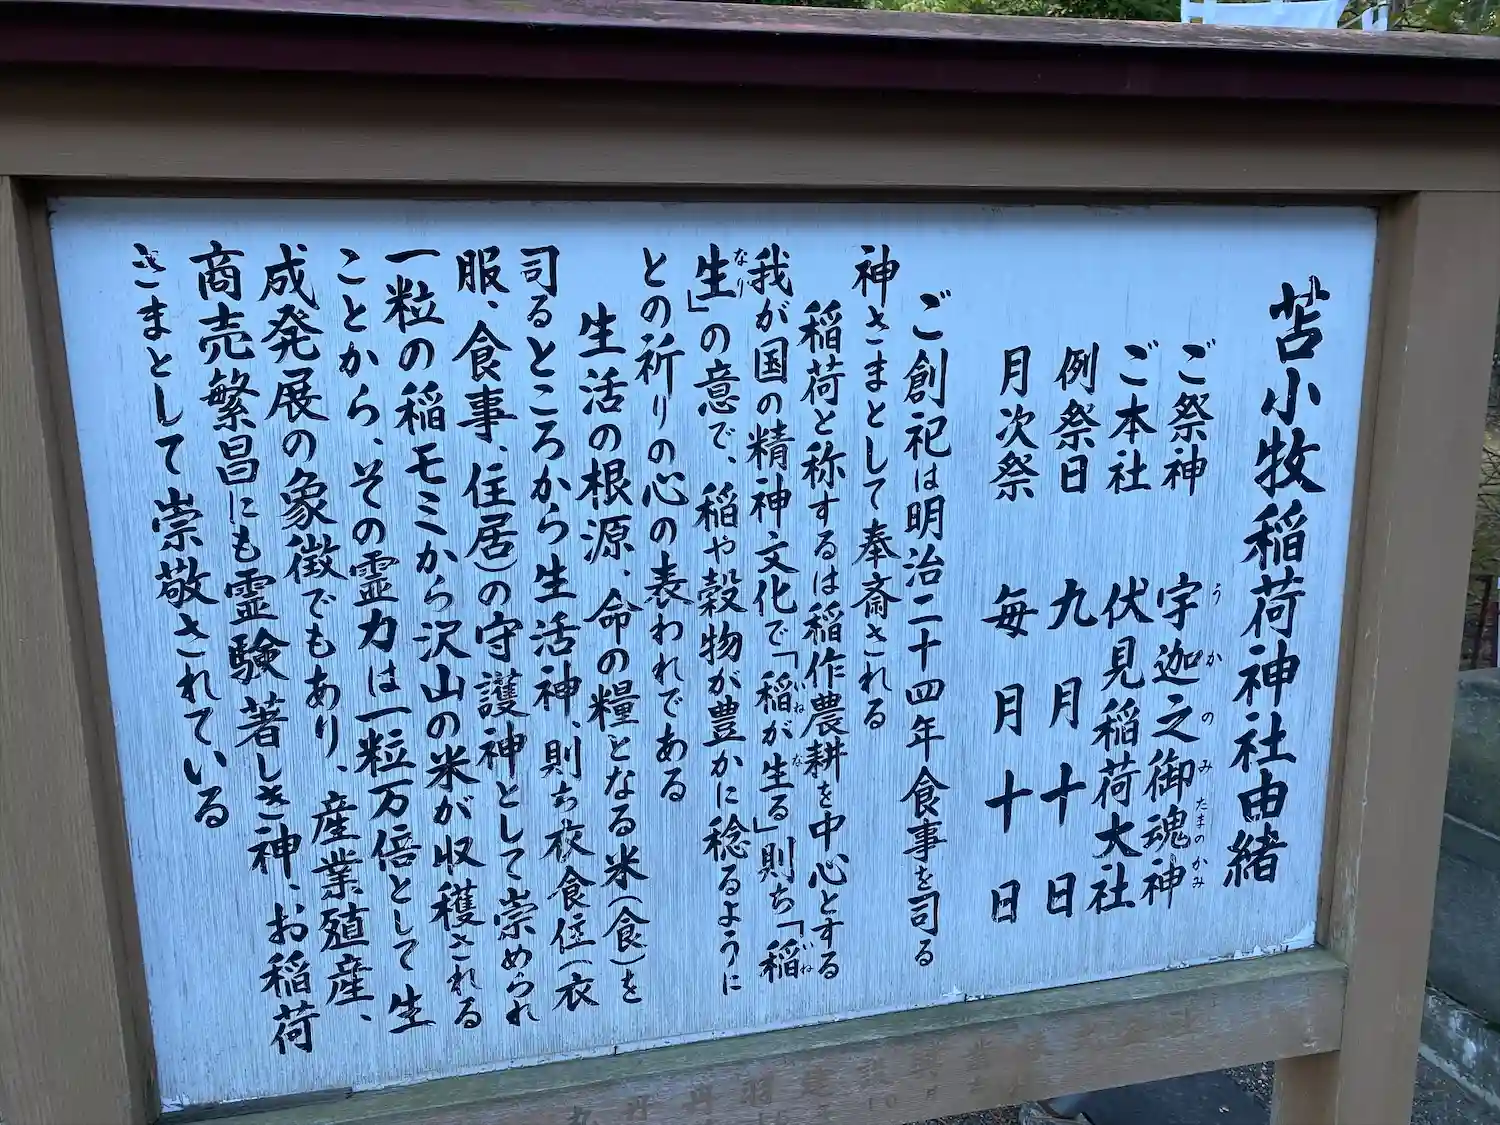 苫小牧稲荷神社由緒
ご祭神 宇迦之御魂神
うかのみたまのかみ
ご本社 伏見稲荷大社
例祭日 九月十日
月次祭 毎月十日
ご創祀は明治二十四年食事を司る
神さまとして奉斎される
稲荷と称するは稲作農耕を中心とする
我が国の精神文化で「稲が生る」則ち「稲
ねなね
生」の意で、稲や穀物が豊かに稔るように
なり
との祈りの心の表われである
生活の根源、命の糧となる米(食)を
司るところから生活神、則ち衣食住(衣
服、食事、住居)の守護神として崇められ
一粒の稲モミから沢山の米が収穫される
ことから、その霊力は一粒万倍として生
成発展の象徴でもあり、産業殖産、
商売繁昌にも霊験著しき神、お稲荷
さまとして崇敬されている